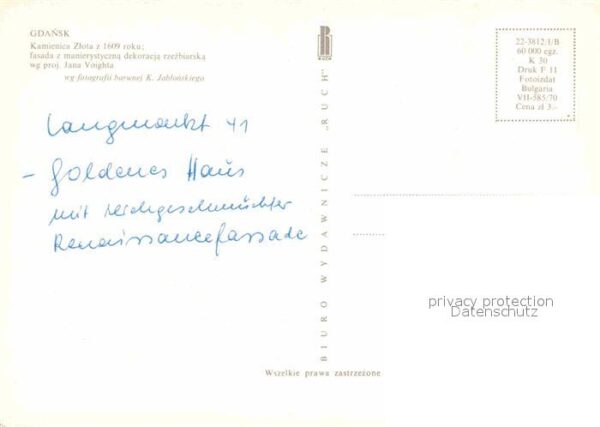 GDAŃSK
Kamienica Złota z 1609 roku;
fasada z manierystyczną dekoracją rzeźbiarską
wg proj. Jana Voighta
wg fotografii barwnej K. Jabłońskiego
Langmarkt 41
- Goldenes Haus
mit reichgeschmückter
Renaissancefassade
RUCH
BIURO WYDAWNICZE „RUCH”
22-3812/I/B
60 000 egz.
K 30
Druk F 11
Fotoizdat
Bulgaria
VII-585/70
Cena zł 3.-
privacy protection
Datenschutz
Wszelkie prawa zastrzeżone